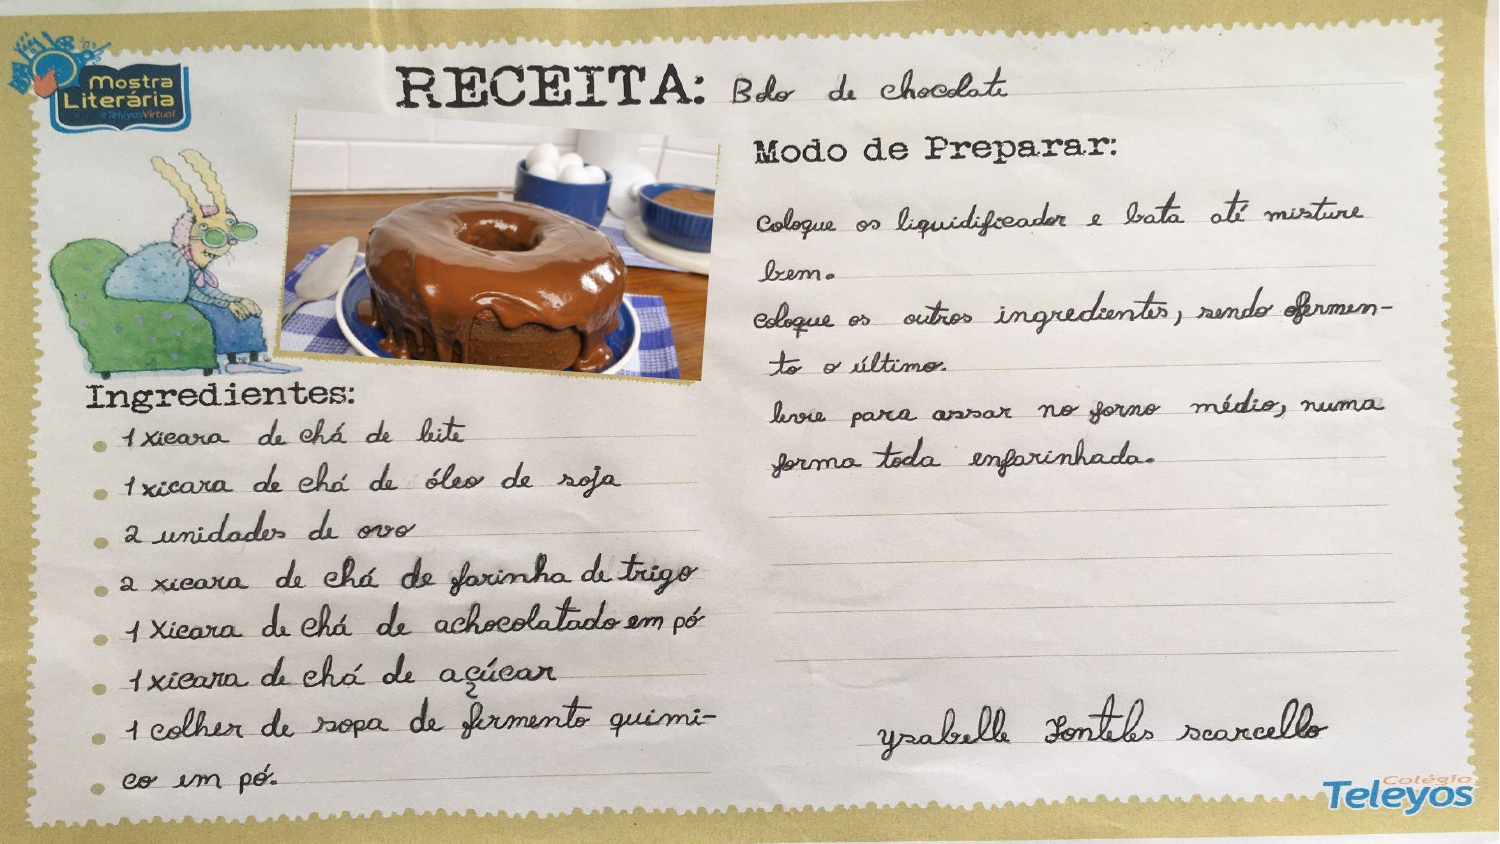 Mostra
Literária
#TeleyosVirtual
RECEITA: Bolo de chocolate
Ingredientes:
1 xicara de chá de leite
1 xicara de chá de óleo de soja
2 unidades de ovo
2 xicara de chá de farinha de trigo
1 Xicara de chá de achocolatado em pó
1 xicara de chá de açúcar
1 colher de sopa de fermento quimi-
co em pó.
Modo de Preparar:
Coloque os liquidificador e bata até misture
bem.
coloque os outros ingredientes, sendo o fermen-
to o último.
levie para assar no forno médio, numa
forma toda enfarinhada.
Ysabelle Fonteles scarcello
Colégio
Teleyos